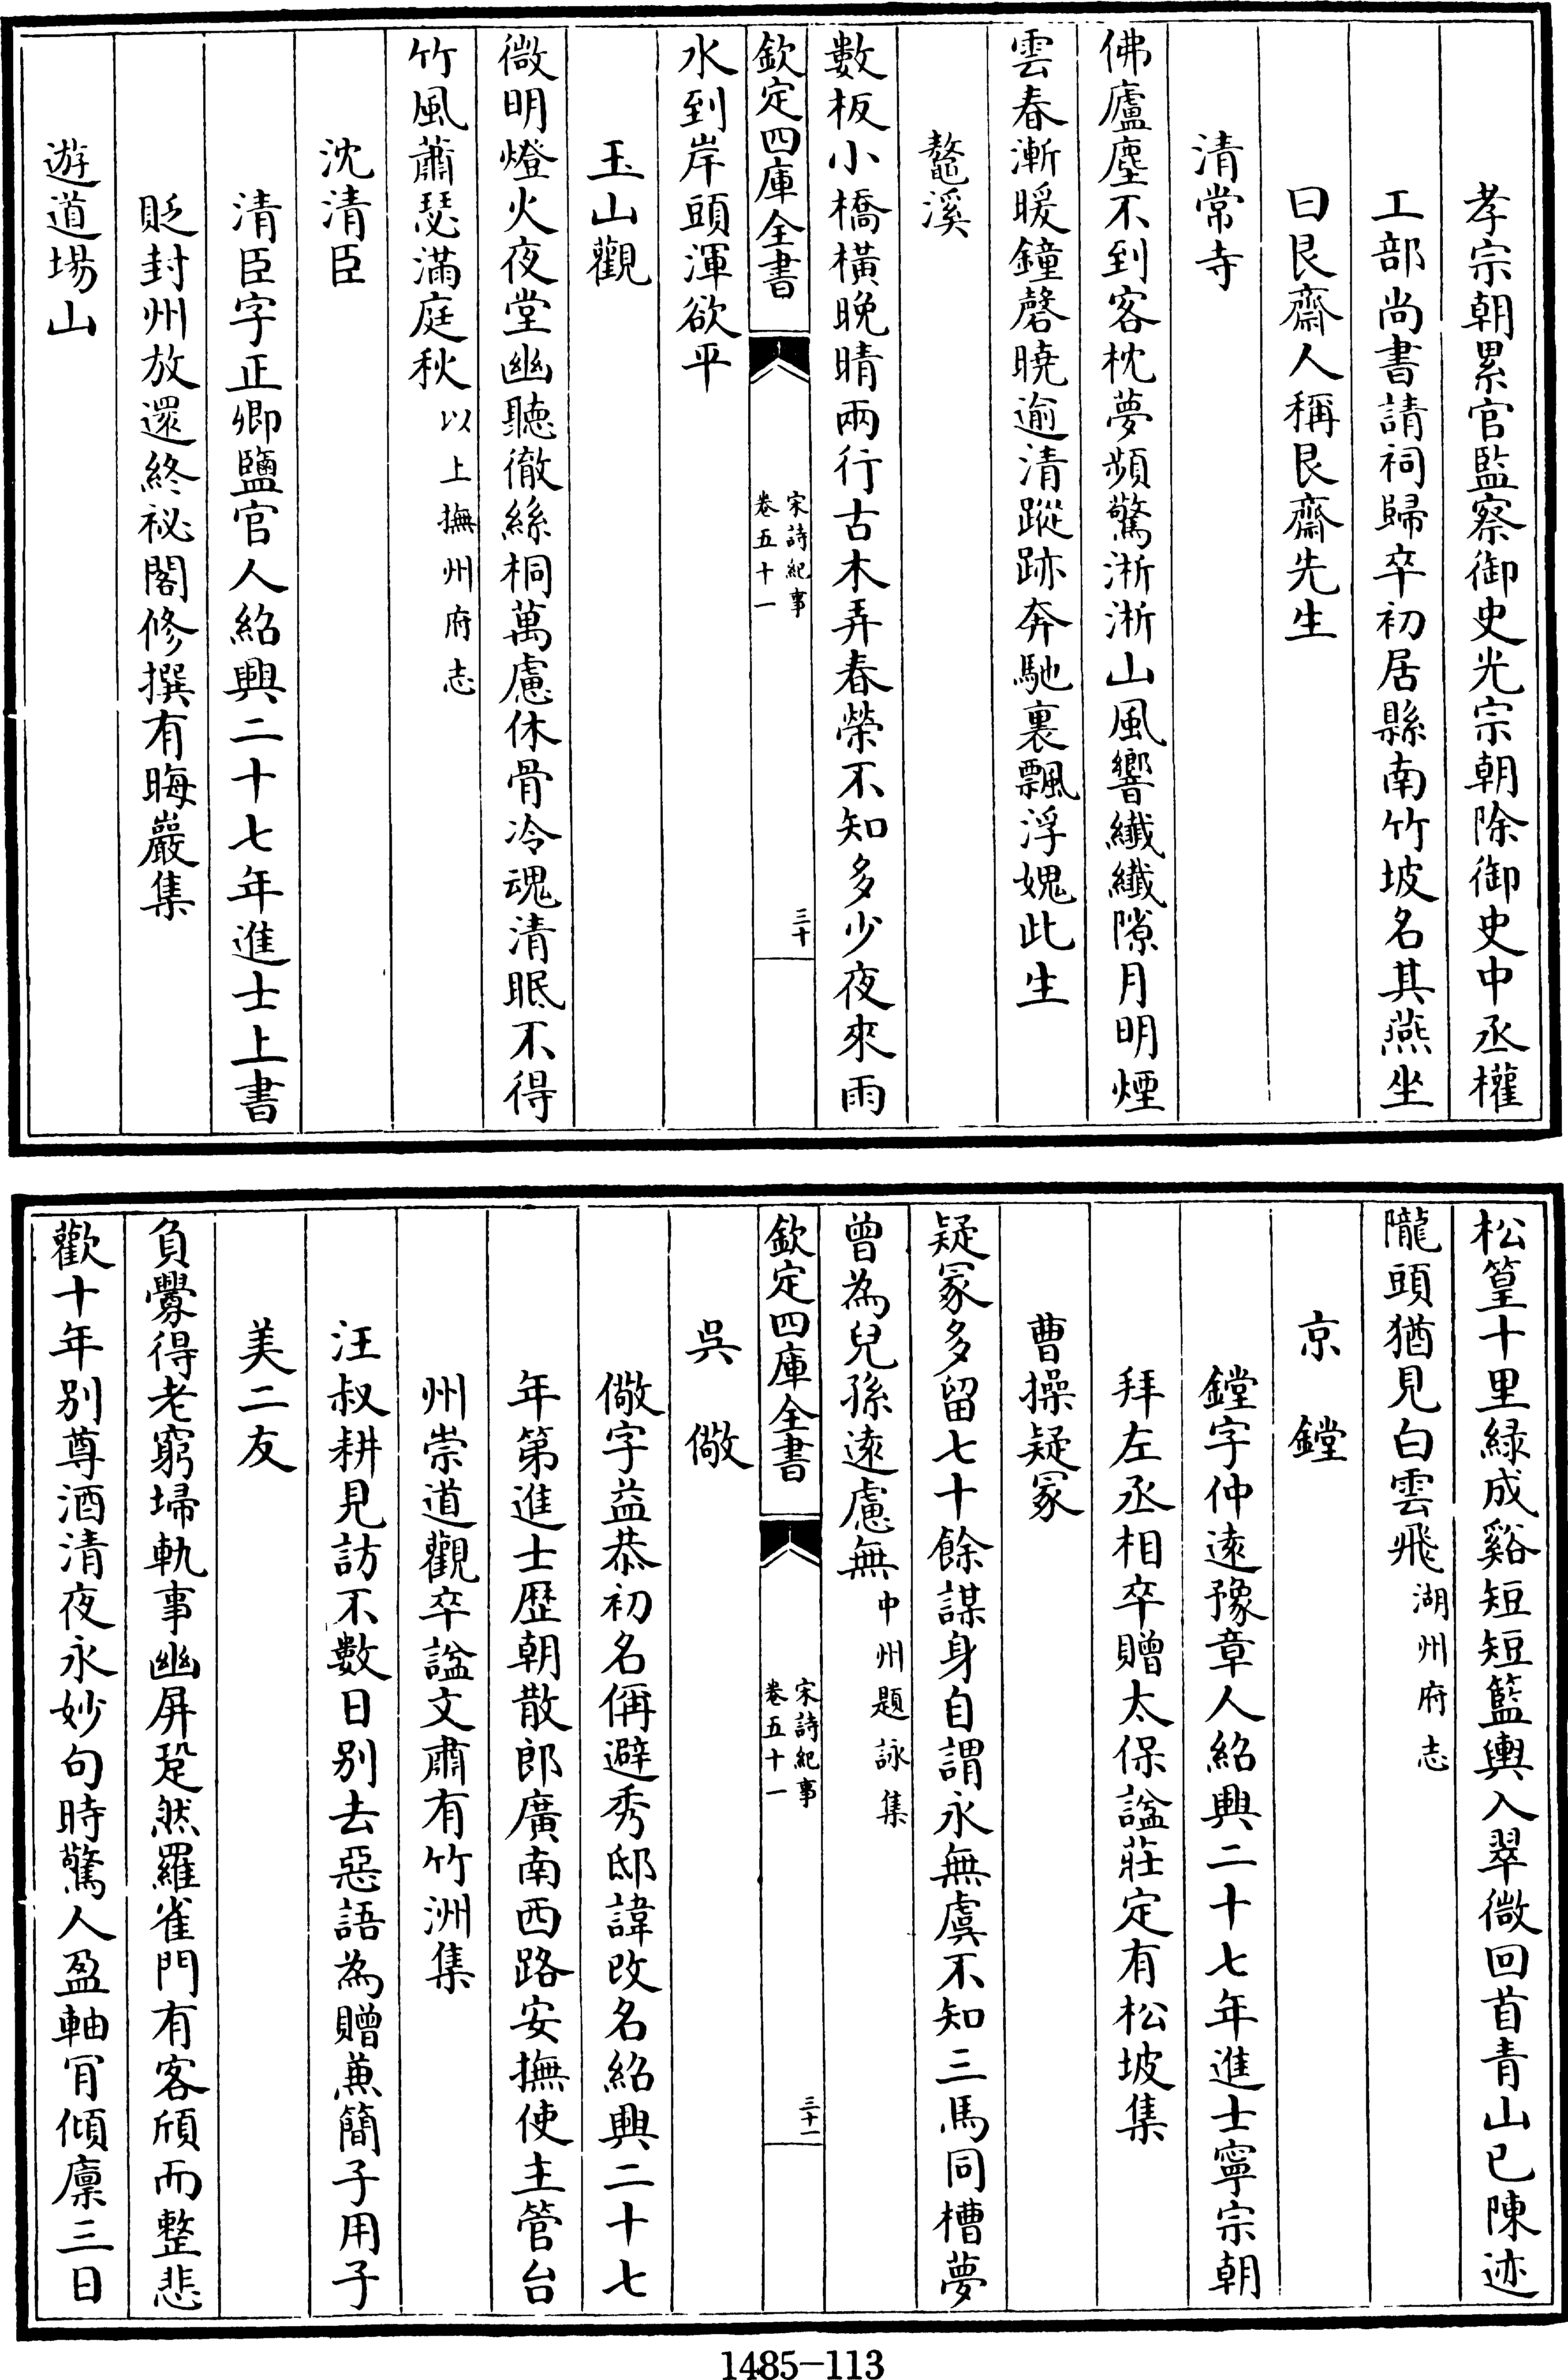 孝宗朝累官監察御史光宗朝除御史中丞權
工部尚書請祠歸卒初居縣南竹坡名其燕坐
曰艮齋人稱艮齋先生
清常寺
佛廬塵不到客枕夢頻驚淅淅山風響纖纖隙月明煙
雲春漸暖鐘磬曉逾清蹤跡奔馳裏飄浮媿此生
鼇溪
數板小橋橫晚晴兩行古木弄春榮不知多少夜來雨
欽定四庫全書
宋詩紀事
卷五十一
三十
水到岸頭渾欲平
玉山觀
微明燈火夜堂幽聽徹絲桐萬慮休骨冷魂清眠不得
竹風蕭瑟滿庭秋以上撫州府志
沈清臣
清臣字正卿鹽官人紹興二十七年進士上書
貶封州放還終祕閣修撰有晦巖集
遊道場山
松篁十里緑成谿短短籃輿入翠微回首青山已陳迹
隴頭猶見白雲飛湖州府志
京鏜
鏜字仲遠豫章人紹興二十七年進士寧宗朝
拜左丞相卒贈太保諡莊定有松坡集
曹操疑冢
疑冢多留七十餘謀身自謂永無虞不知三馬同槽夢
曾為兒孫遠慮無中州題詠集
欽定四庫全書
宋詩紀事
卷五十一
三十一
吳儆
儆字益恭初名偁避秀邸諱改名紹興二十七
年第進士歷朝散郎廣南西路安撫使主管台
州崇道觀卒諡文肅有竹洲集
汪叔耕見訪不數日别去惡語為贈兼簡子用子
美二友
負釁得老窮埽軌事幽屏跫然羅雀門有客頎而整悲
歡十年别尊酒清夜永妙句時驚人盈軸肎傾廩三日
1485-113